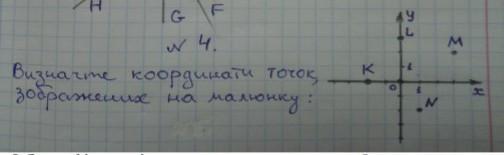 H G F
N 4.
Визначте координати точок,
зображених на малюнку:
y
L
M
K
1
0 1 x
N